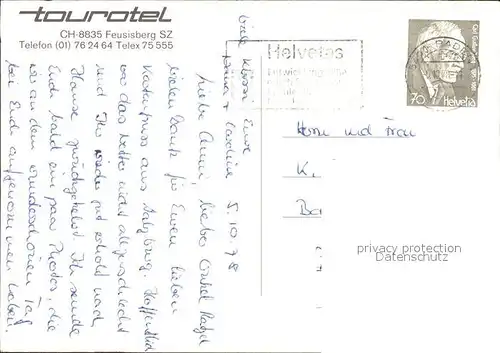 tourotel
CH-8835 Feusisberg SZ
Telefon (01) 76 24 64 Telex 75 555
5. 10. 78
Liebe Anni, lieber Onkel
vielen Dank für Euren lieben
Kartengruss aus Salzburg. Hoffentlich
war das Wetter nicht allzu schlecht
und Ihr seid gut erholt nach
Hause zurückgekehrt. Ich sende
Euch bald ein paar Photos, die
wir an dem wunderschönen Tag
bei Euch aufgenommen haben.
viele Küsse Eure
Caroline
Helvetas
BADEN
70 Helvetia
Herrn und Frau
K.
Ba
privacy protection
Datenschutz